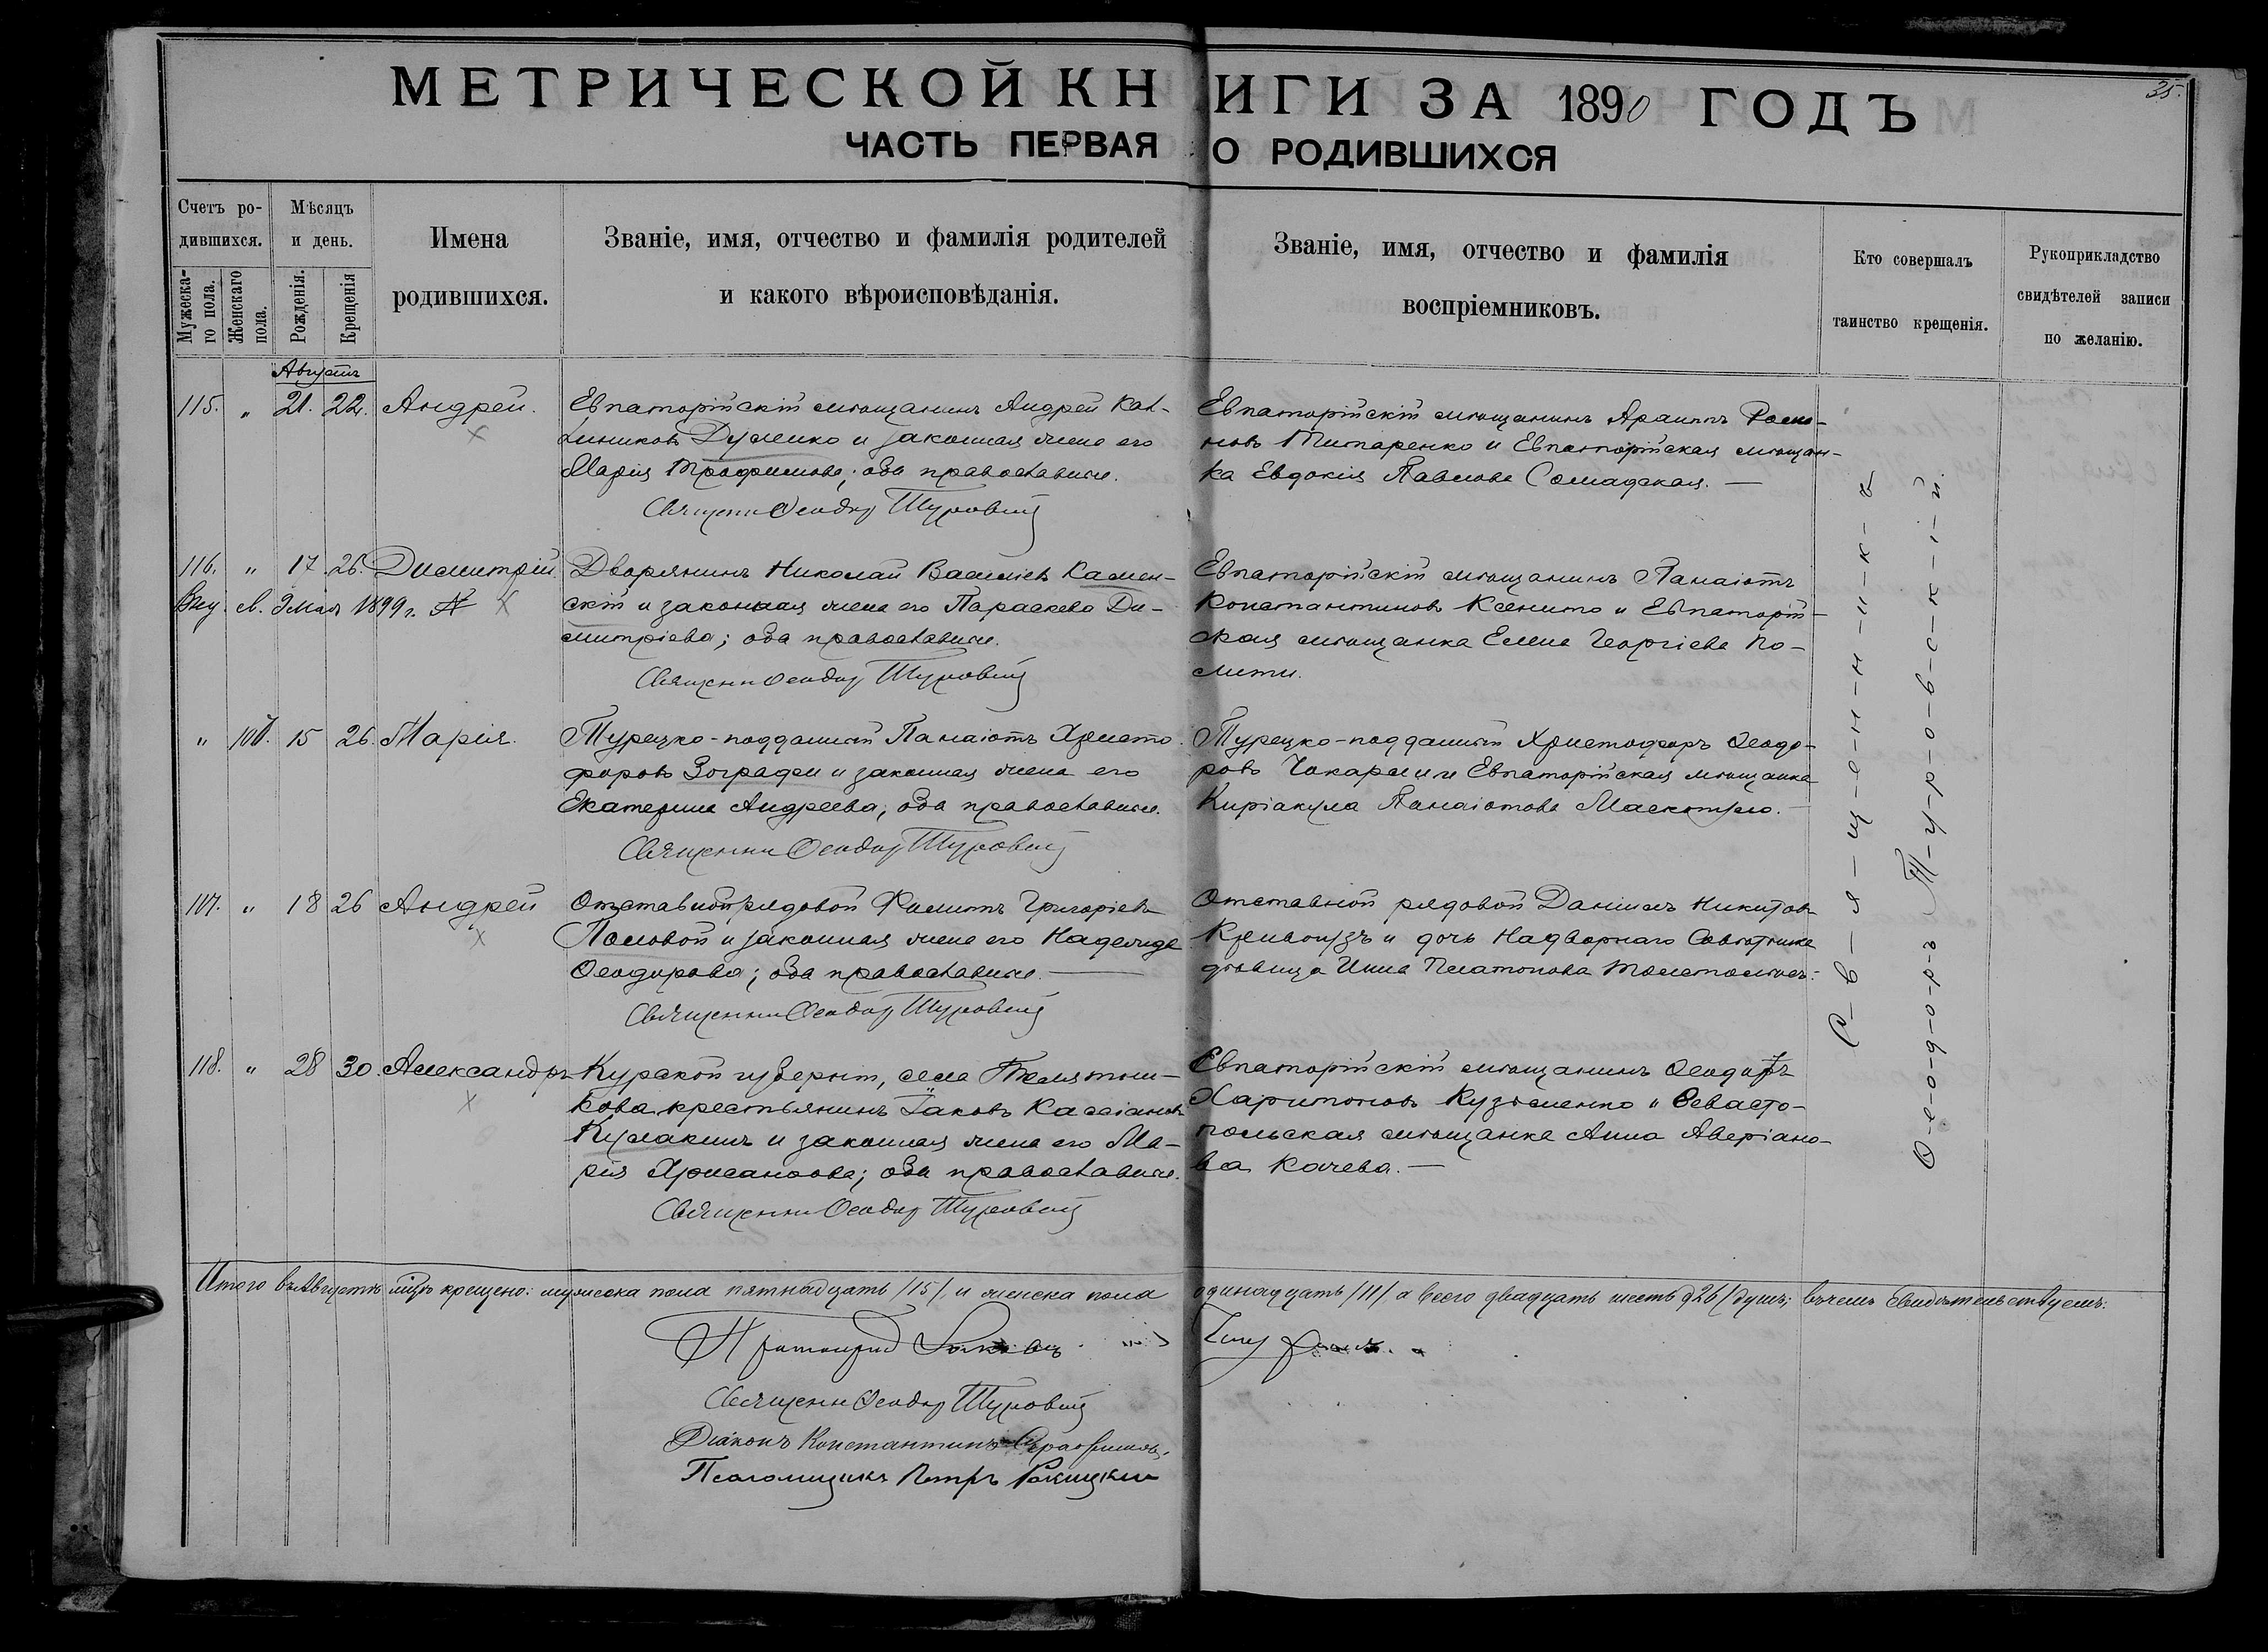 35.
МЕТРИЧЕСКОЙ КНИГИ ЗА 1890 ГОДЪ
ЧАСТЬ ПЕРВАЯ О РОДИВШИХСЯ
Счетъ ро-
дившихся.
Мужеска-
го пола.
Женскаго
пола.
Мѣсяцъ
и день.
Рожденія.
Крещенія
Имена
родившихся.
Званіе, имя, отчество и фамилія родителей
и какого вѣроисповѣданія.
Званіе, имя, отчество и фамилія
воспріемниковъ.
Кто совершалъ
таинство крещенія.
Рукоприкладство
свидѣтелей записи
по желанію.
Августъ
115. " 21. 22. Андрей.
Евпаторійскій мѣщанинъ Андрей Кал-
линиковъ Дуленко и законная жена его
Марія Трофимова; оба православные.
Священникъ Ѳеодоръ Туровскій
Евпаторійскій мѣщанинъ
Титаренко и Евпаторійская мѣщан-
ка Евдокія Павлова
116. " 17. 26. Димитрій.
Выд. св. 9 мая 1899 г. №
Дворянинъ Николай Васильевъ Камен-
скій и законная жена его Параскева Ди-
митріева; оба православные.
Священникъ Ѳеодоръ Туровскій
Евпаторійскій мѣщанинъ Панаіотъ
Константиновъ Ксенито и Евпаторій-
ская мѣщанка Елена Георгіева По-
лити.
" 15 26. Марія.
Турецко-подданный Панаіотъ Христо-
форовъ Зографъ и законная жена его
Екатерина Андреева; оба православные.
Священникъ Ѳеодоръ Туровскій
Турецко-подданный Христофоръ Ѳеодо-
ровъ и Евпаторійская мѣщанка
Киріакула Панаіотова
117. " 18 26 Андрей
Отставной рядовой Филиппъ Григорьевъ
Половой и законная жена его Надежда
Ѳеодорова; оба православные.
Священникъ Ѳеодоръ Туровскій
Отставной рядовой Даніилъ Никитовъ
и дочь Надворнаго Совѣтника
дѣвица Платонова
118. " 28 30. Александръ
Курской губерніи, села
крестьянинъ Іаковъ Кассіановъ
Кулакинъ и законная жена его Ма-
рія Хрисанфова; оба православные.
Священникъ Ѳеодоръ Туровскій
Евпаторійскій мѣщанинъ Ѳеодоръ
Харитоновъ Кузьменко и Севасто-
польская мѣщанка Анна Аверіано-
ва Качева.
С-в-я-щ-е-н-н-и-к-ъ
Ѳ-е-о-д-о-р-ъ Т-у-р-о-в-с-к-і-й.
Итого въ Августѣ мѣсяцѣ крещено: мужеска пола пятнадцать /15/ и женска пола одинадцать /11/ а всего двадцать шесть /26/ душъ; въ чемъ свидѣтельствуемъ:
Протоіерей
Священникъ Ѳеодоръ Туровскій
Діаконъ Константинъ Серафимовъ
Псаломщикъ Петръ Ракицкій